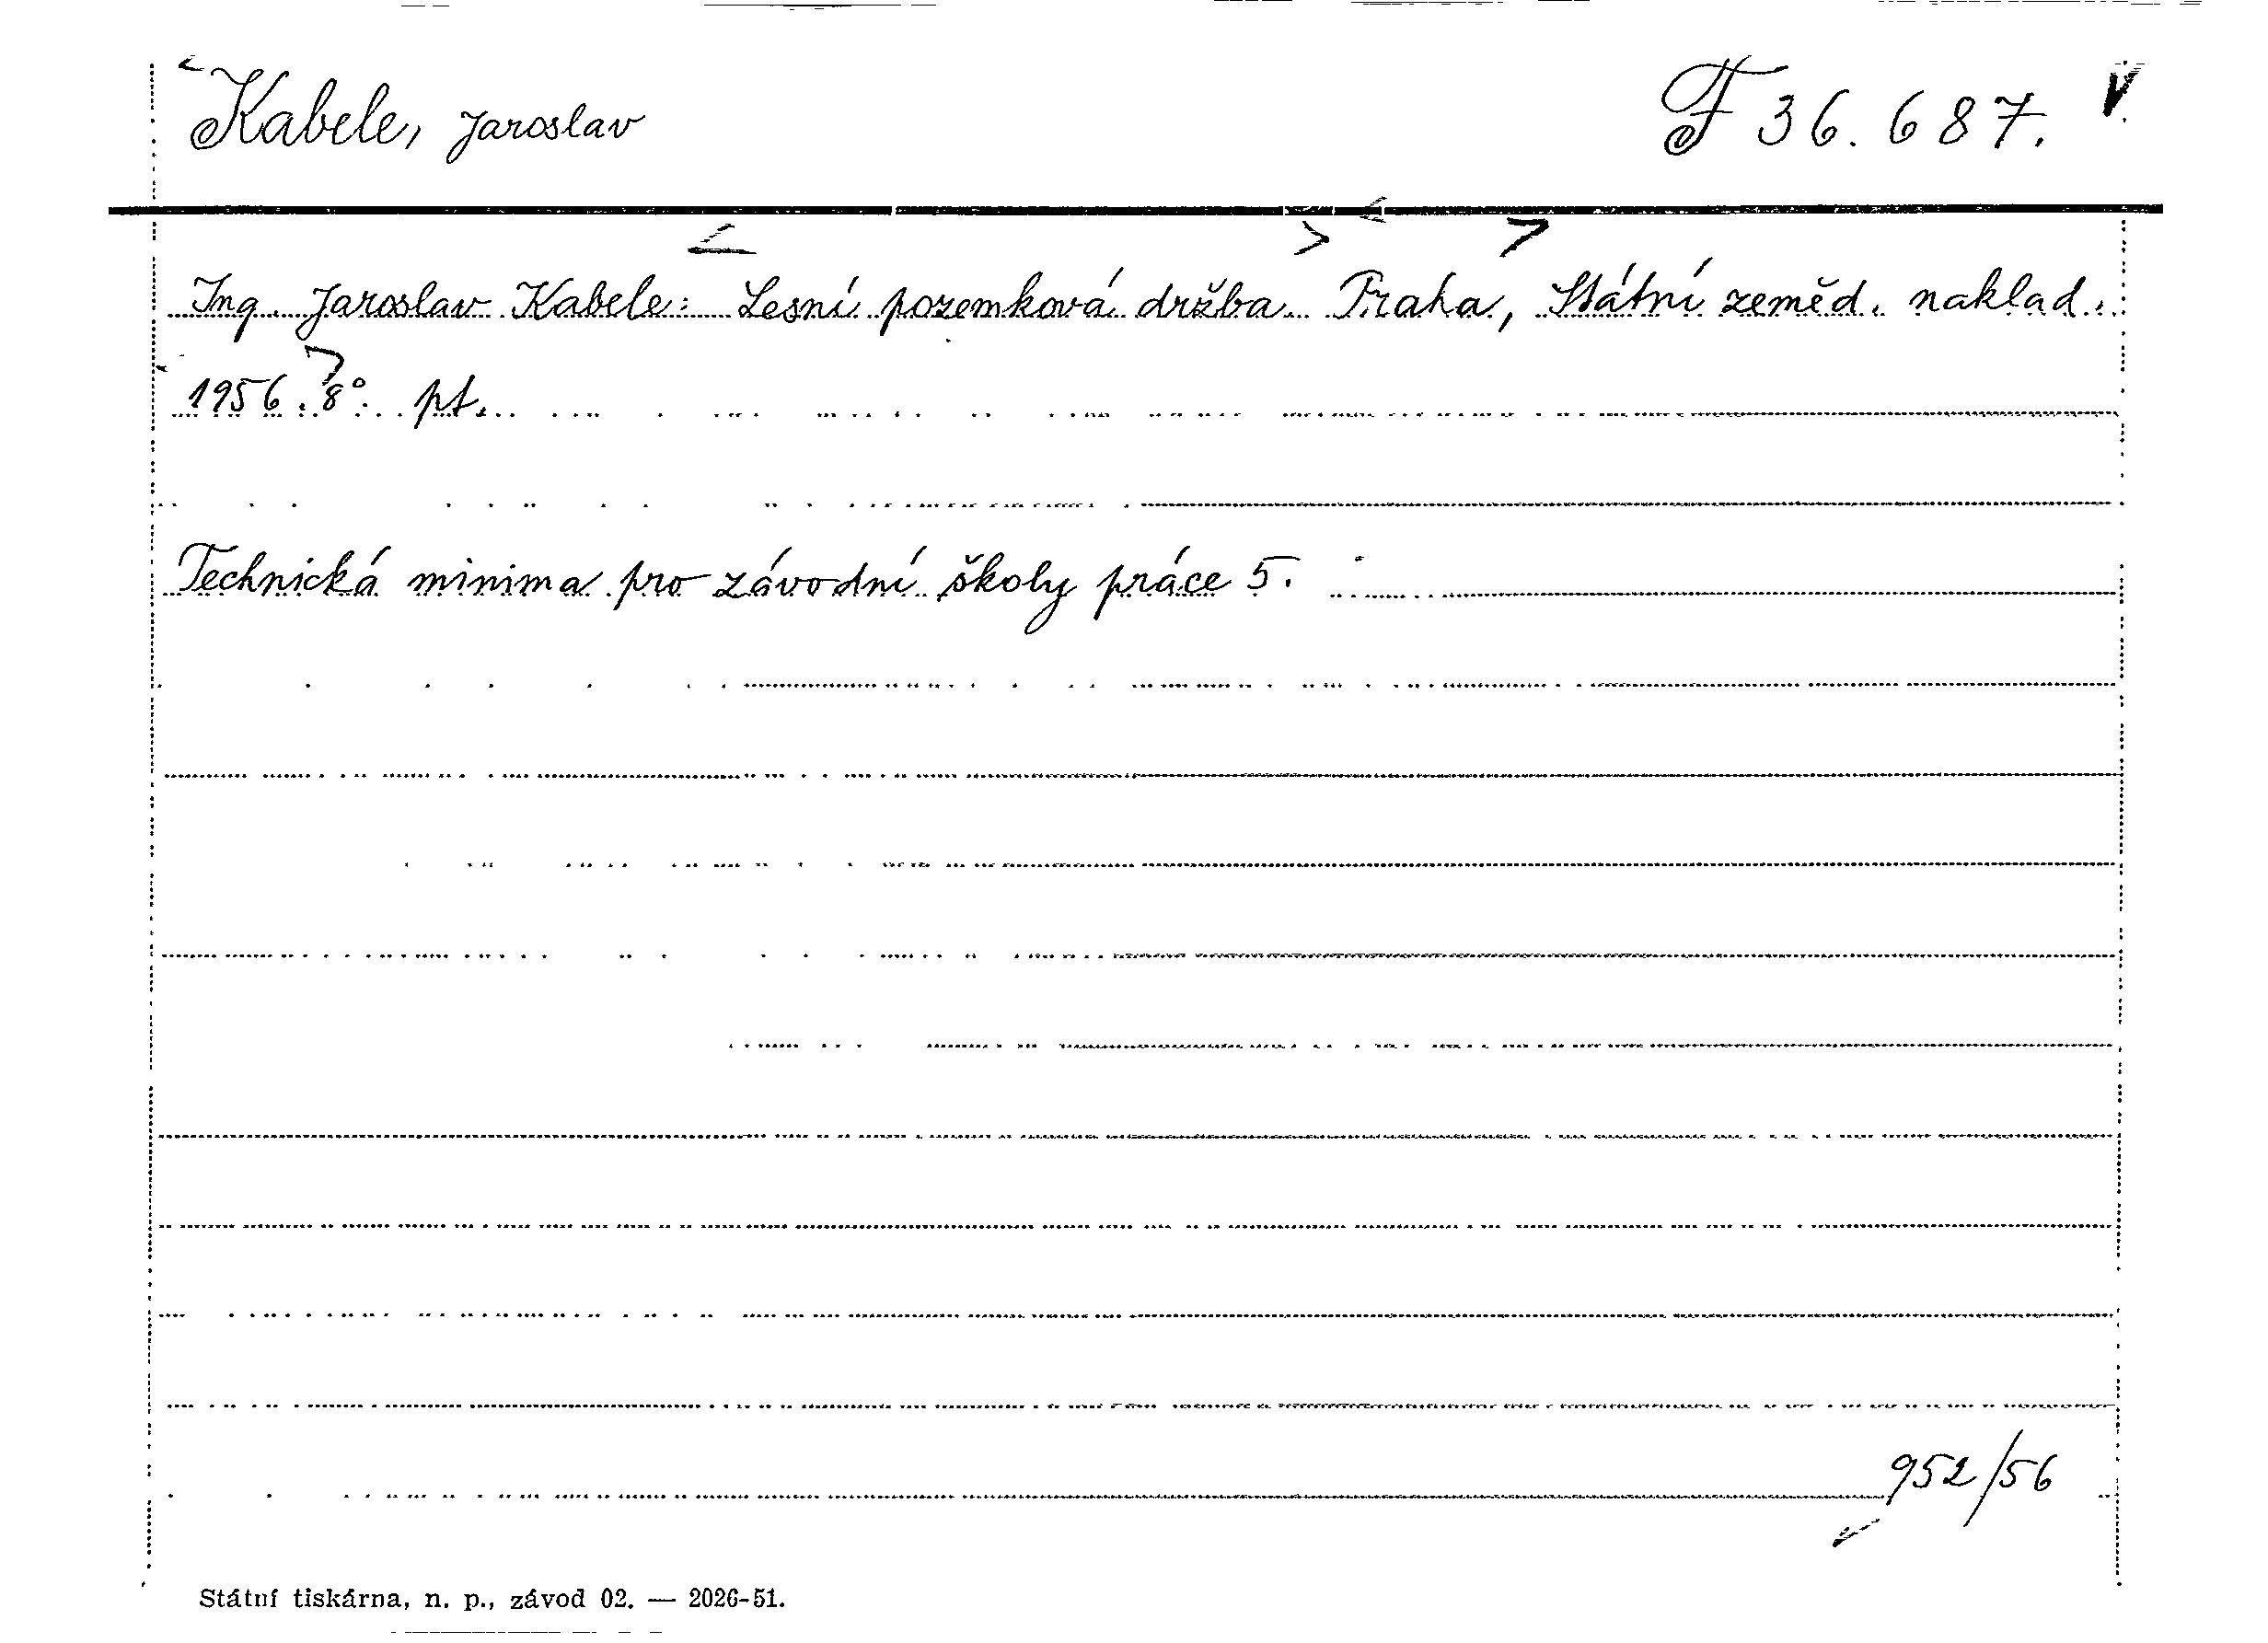 Kabele, Jaroslav F 36.687. V
Ing. Jaroslav Kabele: Lesní pozemková držba. Praha, Státní zeměd. naklad.
1956. 8°. pt.
Technická minima pro závodní školy práce 5.
952/56
Státní tiskárna, n. p., závod 02. — 2026-51.